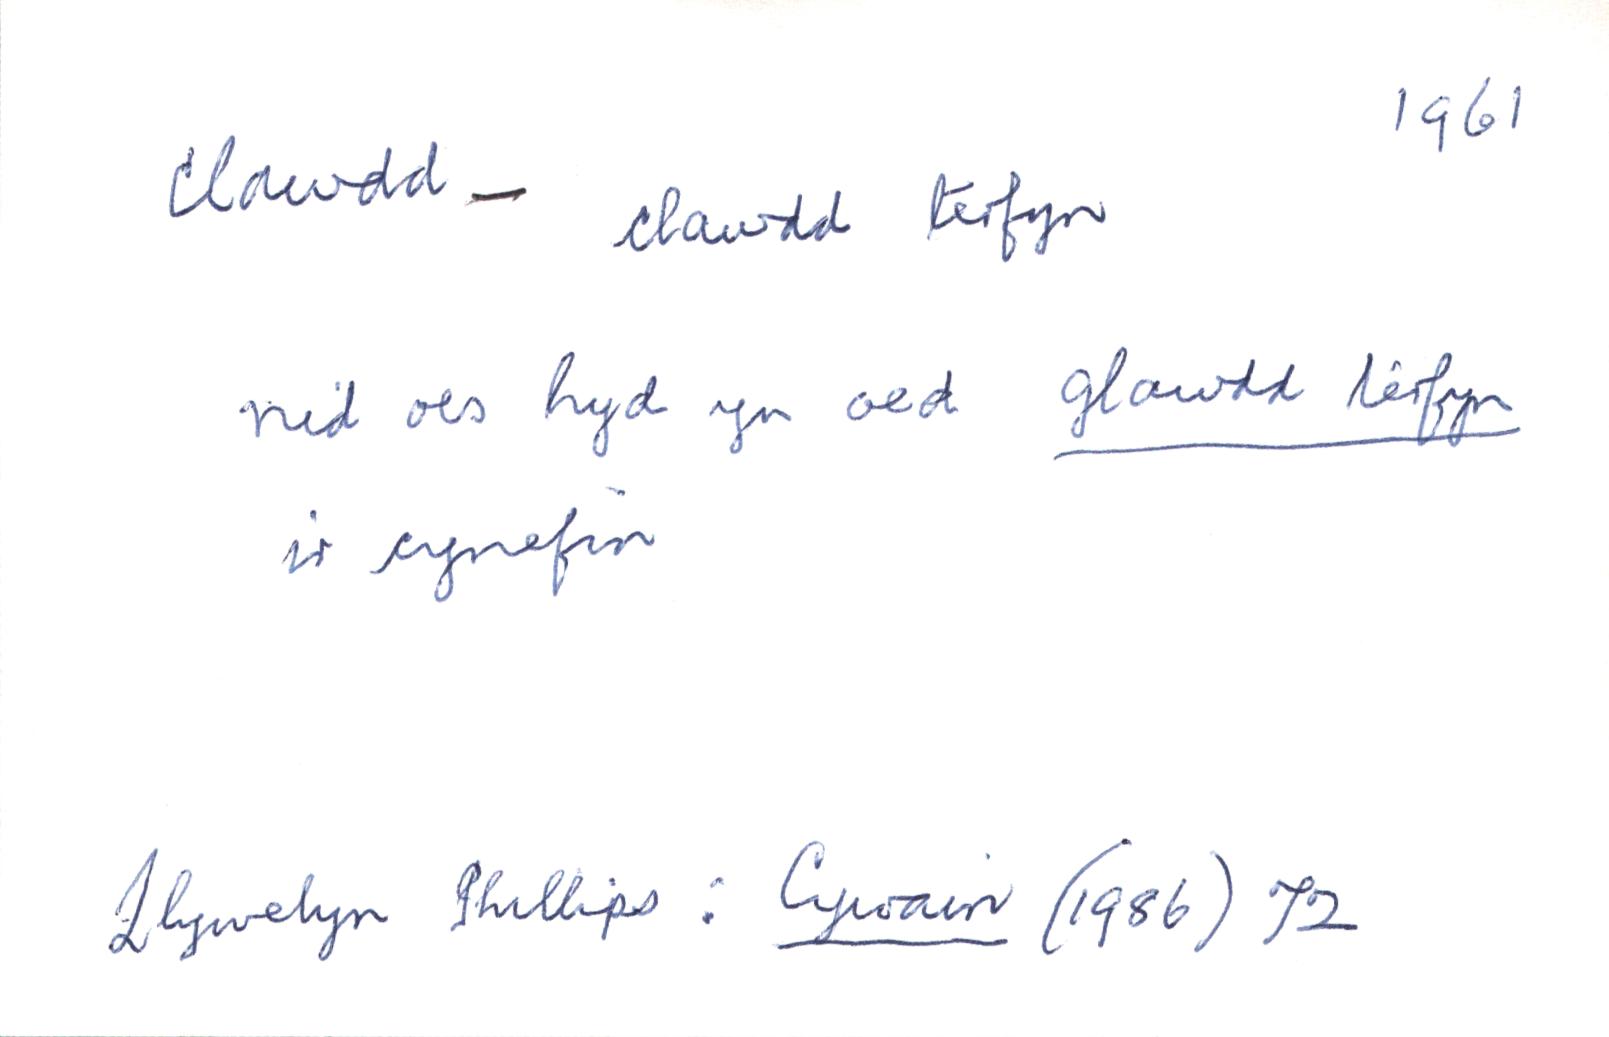 1961
clawdd – clawdd terfyn
nid oes hyd yn oed glawdd terfyn
i'r cynefin
Llywelyn Phillips : Cywain (1986) 72